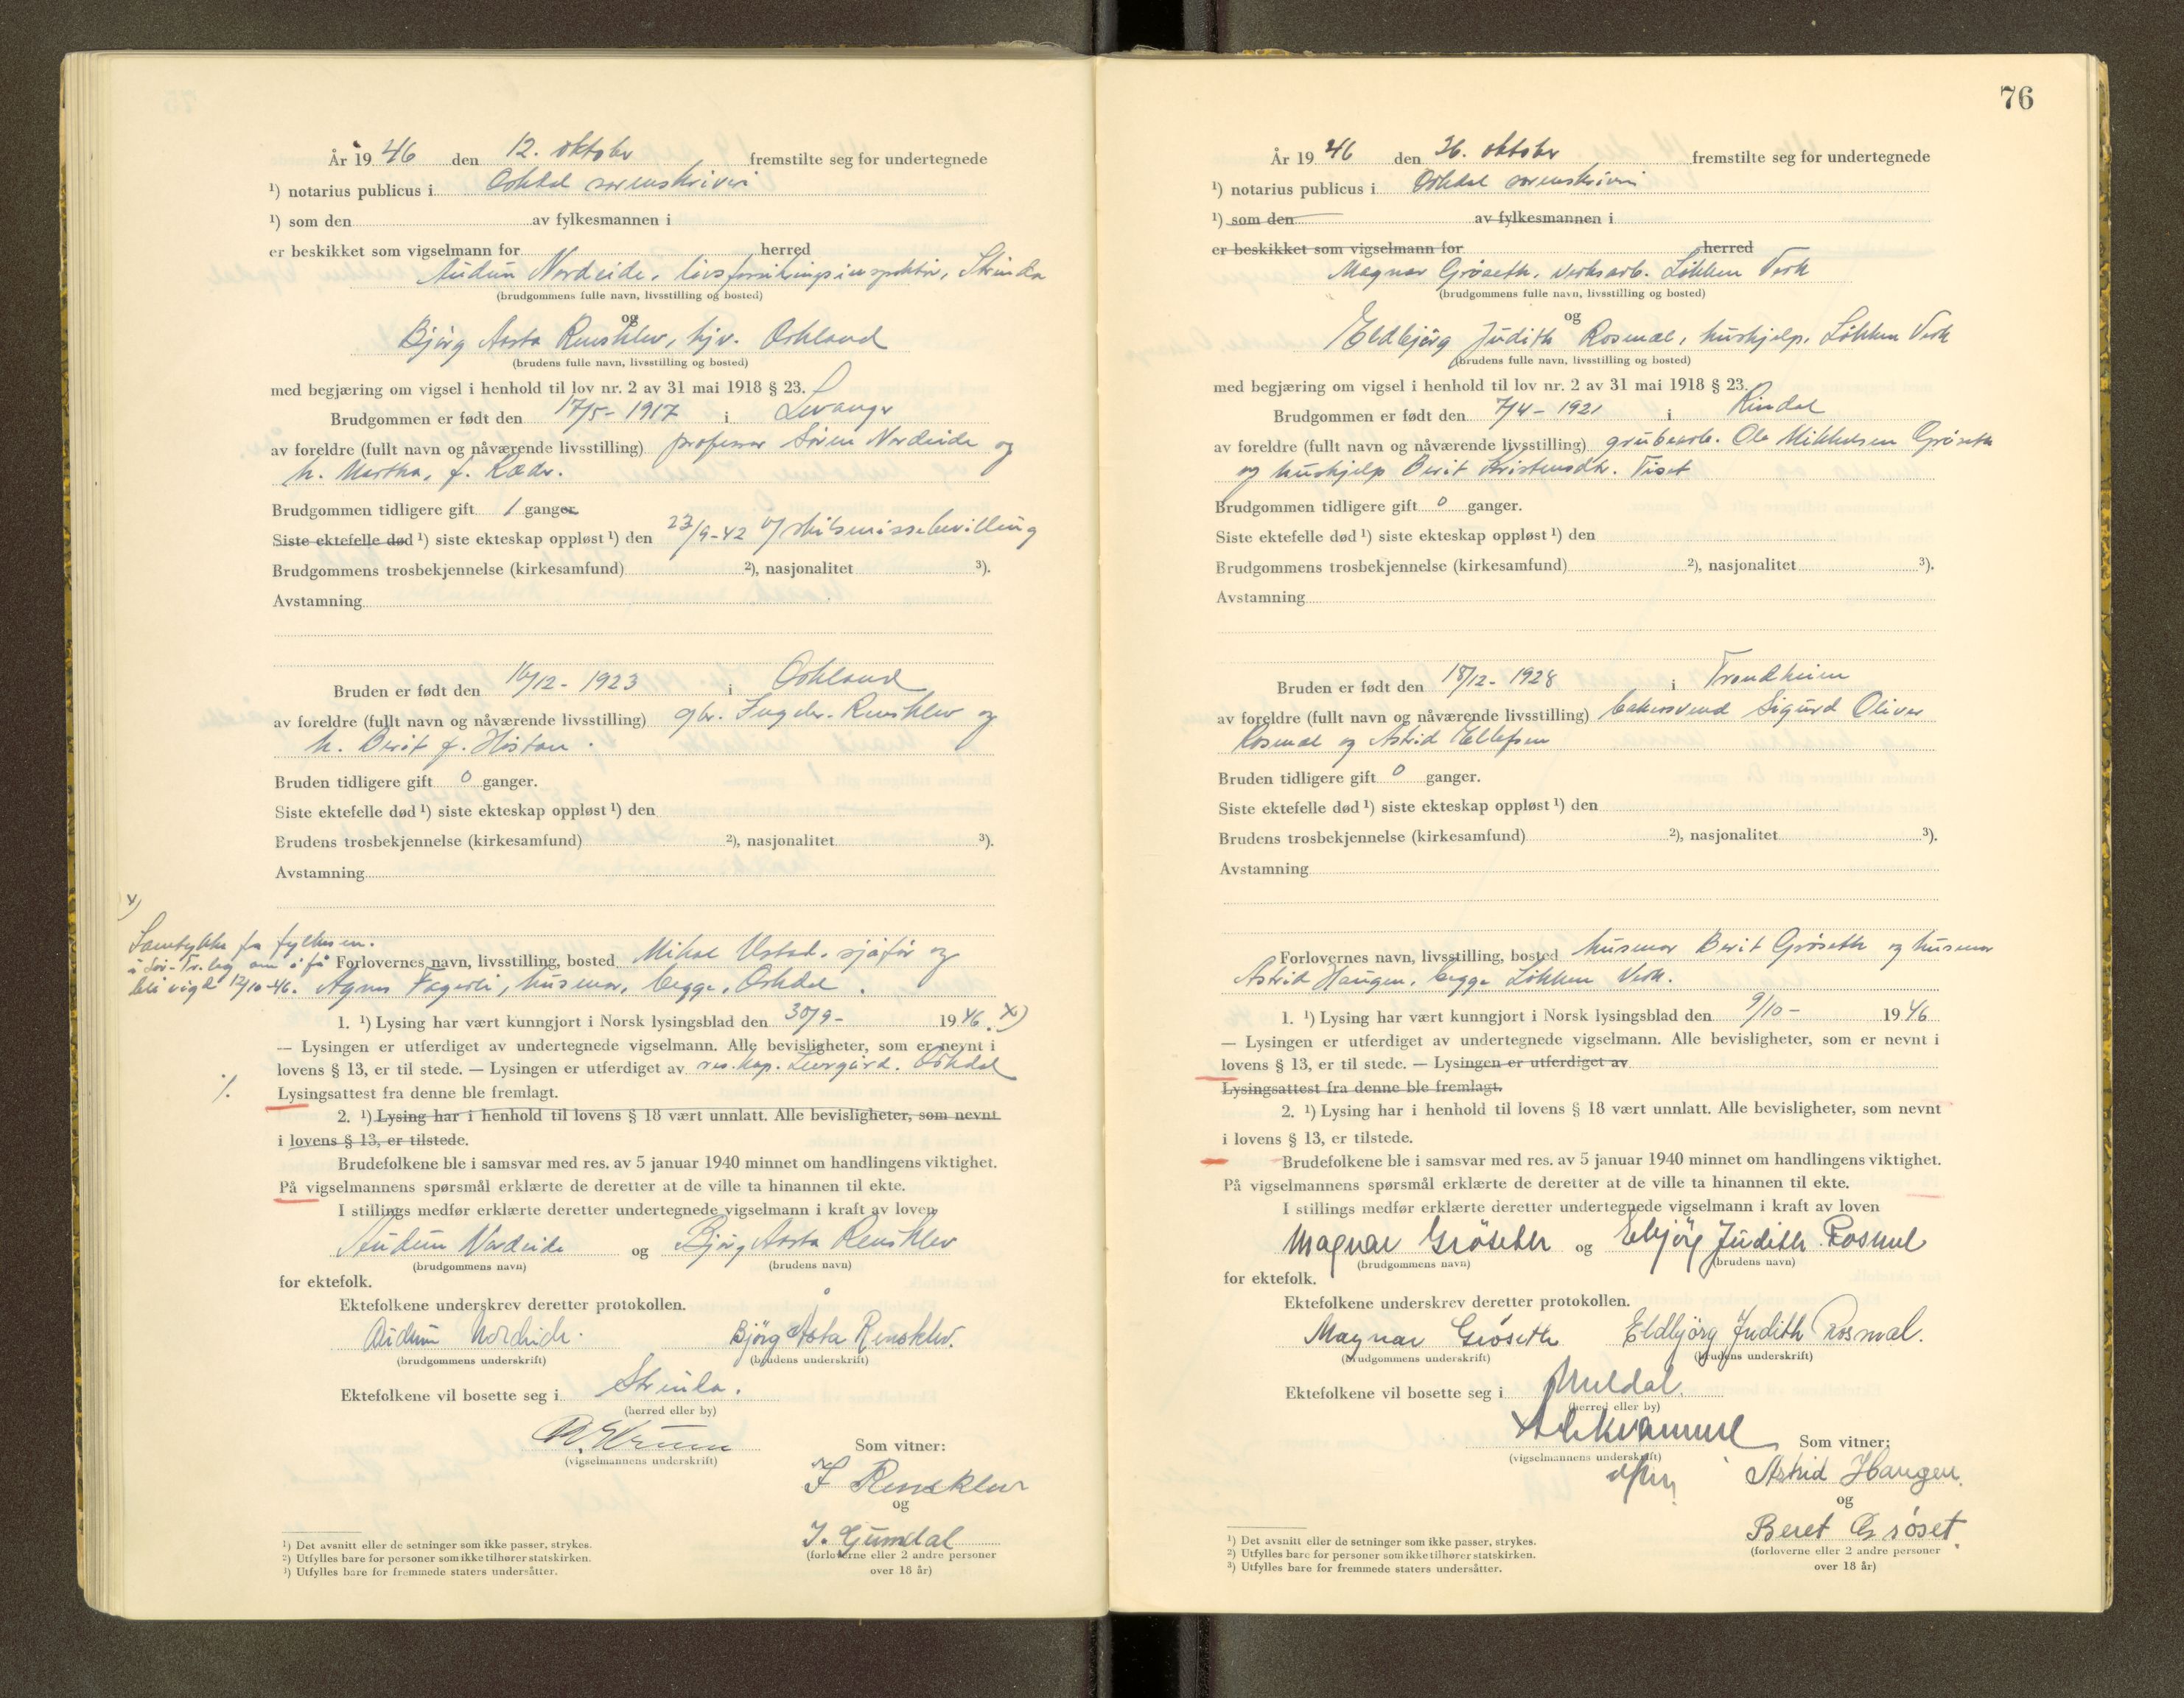 År 1946 den 12. oktober fremstilte seg for undertegnede
¹) notarius publicus i Orkdal sorenskriveri
¹) som den av fylkesmannen i
er beskikket som vigselmann for herred
Audun Nordeide, livsforsikringsinspektör, Strinda
(brudgommens fulle navn, livsstilling og bosted)
og
Björg Aasta Rensklev, hjv. Orkland
(brudens fulle navn, livsstilling og bosted)
med begjæring om vigsel i henhold til lov nr. 2 av 31 mai 1918 § 23.
Brudgommen er født den 17/5- 1917 i Levanger
av foreldre (fullt navn og nåværende livsstilling) professor Sören Nordeide og
h. Martha, f. Ræder.
Brudgommen tidligere gift 1 ganger
Siste ektefelle død ¹) siste ekteskap oppløst ¹) den 23/9-42 v/skilsmissebevilling
Brudgommens trosbekjennelse (kirkesamfund) ²), nasjonalitet ³).
Avstamning
Bruden er født den 16/12- 1923 i Orkland
av foreldre (fullt navn og nåværende livsstilling) gbr. Rensklev og
h. Berit f. Hoston.
Bruden tidligere gift 0 ganger.
Siste ektefelle død ¹) siste ekteskap oppløst ¹) den
Brudens trosbekjennelse (kirkesamfund) ²), nasjonalitet ³).
Avstamning
x)
Samtykke fra fylkesm.
i Sör-Tr.lag om å få
bli vigd 12/10-46.
Forlovernes navn, livsstilling, bosted Mikal Ustad, sjåför og
Agnes Fagerli, husmor, begge, Orkdal.
1. ¹) Lysing har vært kunngjort i Norsk lysingsblad den 30/9- 1946. x)
— Lysingen er utferdiget av undertegnede vigselmann. Alle bevisligheter, som er nevnt i
lovens § 13, er til stede. — Lysingen er utferdiget av res. kap. Orkdal
./. Lysingsattest fra denne ble fremlagt.
2. ¹) Lysing har i henhold til lovens § 18 vært unnlatt. Alle bevisligheter, som nevnt
i lovens § 13, er tilstede.
Brudefolkene ble i samsvar med res. av 5 januar 1940 minnet om handlingens viktighet.
På vigselmannens spørsmål erklærte de deretter at de ville ta hinannen til ekte.
I stillings medfør erklærte deretter undertegnede vigselmann i kraft av loven
Audun Nordeide og Björg Aasta Rensklev
(brudgommens navn) (brudens navn)
for ektefolk.
Ektefolkene underskrev deretter protokollen.
Audun Nordeide. Björg Åsta Rensklev.
(brudgommens underskrift) (brudens underskrift)
Ektefolkene vil bosette seg i Strinda.
(herred eller by)
(vigselmannens underskrift)
Som vitner:
Rensklev
og
J. Gumdal
(forloverne eller 2 andre personer
over 18 år)
¹) Det avsnitt eller de setninger som ikke passer, strykes.
²) Utfylles bare for personer som ikke tilhører statskirken.
³) Utfylles bare for fremmede staters undersåtter.
76
År 1946 den 26. oktober fremstilte seg for undertegnede
¹) notarius publicus i Orkdal sorenskriveri
¹) som den av fylkesmannen i
er beskikket som vigselmann for herred
Magnar Gröseth, verksarb. Lökken Verk
(brudgommens fulle navn, livsstilling og bosted)
og
Eldbjörg Judith Rosmæl, hushjelp, Lökken Verk
(brudens fulle navn, livsstilling og bosted)
med begjæring om vigsel i henhold til lov nr. 2 av 31 mai 1918 § 23.
Brudgommen er født den 7/4- 1921 i Rindal
av foreldre (fullt navn og nåværende livsstilling) grubearb. Ole Mikkelsen Gröseth
og hushjelp Berit Kristensdtr. Tiset
Brudgommen tidligere gift 0 ganger.
Siste ektefelle død ¹) siste ekteskap oppløst ¹) den
Brudgommens trosbekjennelse (kirkesamfund) ²), nasjonalitet ³).
Avstamning
Bruden er født den 18/12- 1928 i Trondheim
av foreldre (fullt navn og nåværende livsstilling) bakersvend Sigurd Oliver
Rosmæl og Astrid Ellefsen
Bruden tidligere gift 0 ganger.
Siste ektefelle død ¹) siste ekteskap oppløst ¹) den
Brudens trosbekjennelse (kirkesamfund) ²), nasjonalitet ³).
Avstamning
Forlovernes navn, livsstilling, bosted husmor Berit Gröseth og husmor
Astrid Haugen, begge Lökken Verk.
1. ¹) Lysing har vært kunngjort i Norsk lysingsblad den 9/10- 1946
— Lysingen er utferdiget av undertegnede vigselmann. Alle bevisligheter, som er nevnt i
lovens § 13, er til stede. — Lysingen er utferdiget av
Lysingsattest fra denne ble fremlagt.
2. ¹) Lysing har i henhold til lovens § 18 vært unnlatt. Alle bevisligheter, som nevnt
i lovens § 13, er tilstede.
Brudefolkene ble i samsvar med res. av 5 januar 1940 minnet om handlingens viktighet.
På vigselmannens spørsmål erklærte de deretter at de ville ta hinannen til ekte.
I stillings medfør erklærte deretter undertegnede vigselmann i kraft av loven
Magnar Gröseth og Elbjörg Judith Rosmel
(brudgommens navn) (brudens navn)
for ektefolk.
Ektefolkene underskrev deretter protokollen.
Magnar Gröseth Eldbjörg Judith Rosmal.
(brudgommens underskrift) (brudens underskrift)
Ektefolkene vil bosette seg i Meldal.
(herred eller by)
(vigselmannens underskrift)
Som vitner:
Astrid Haugen.
og
Beret Grøset.
(forloverne eller 2 andre personer
over 18 år)
¹) Det avsnitt eller de setninger som ikke passer, strykes.
²) Utfylles bare for personer som ikke tilhører statskirken.
³) Utfylles bare for fremmede staters undersåtter.